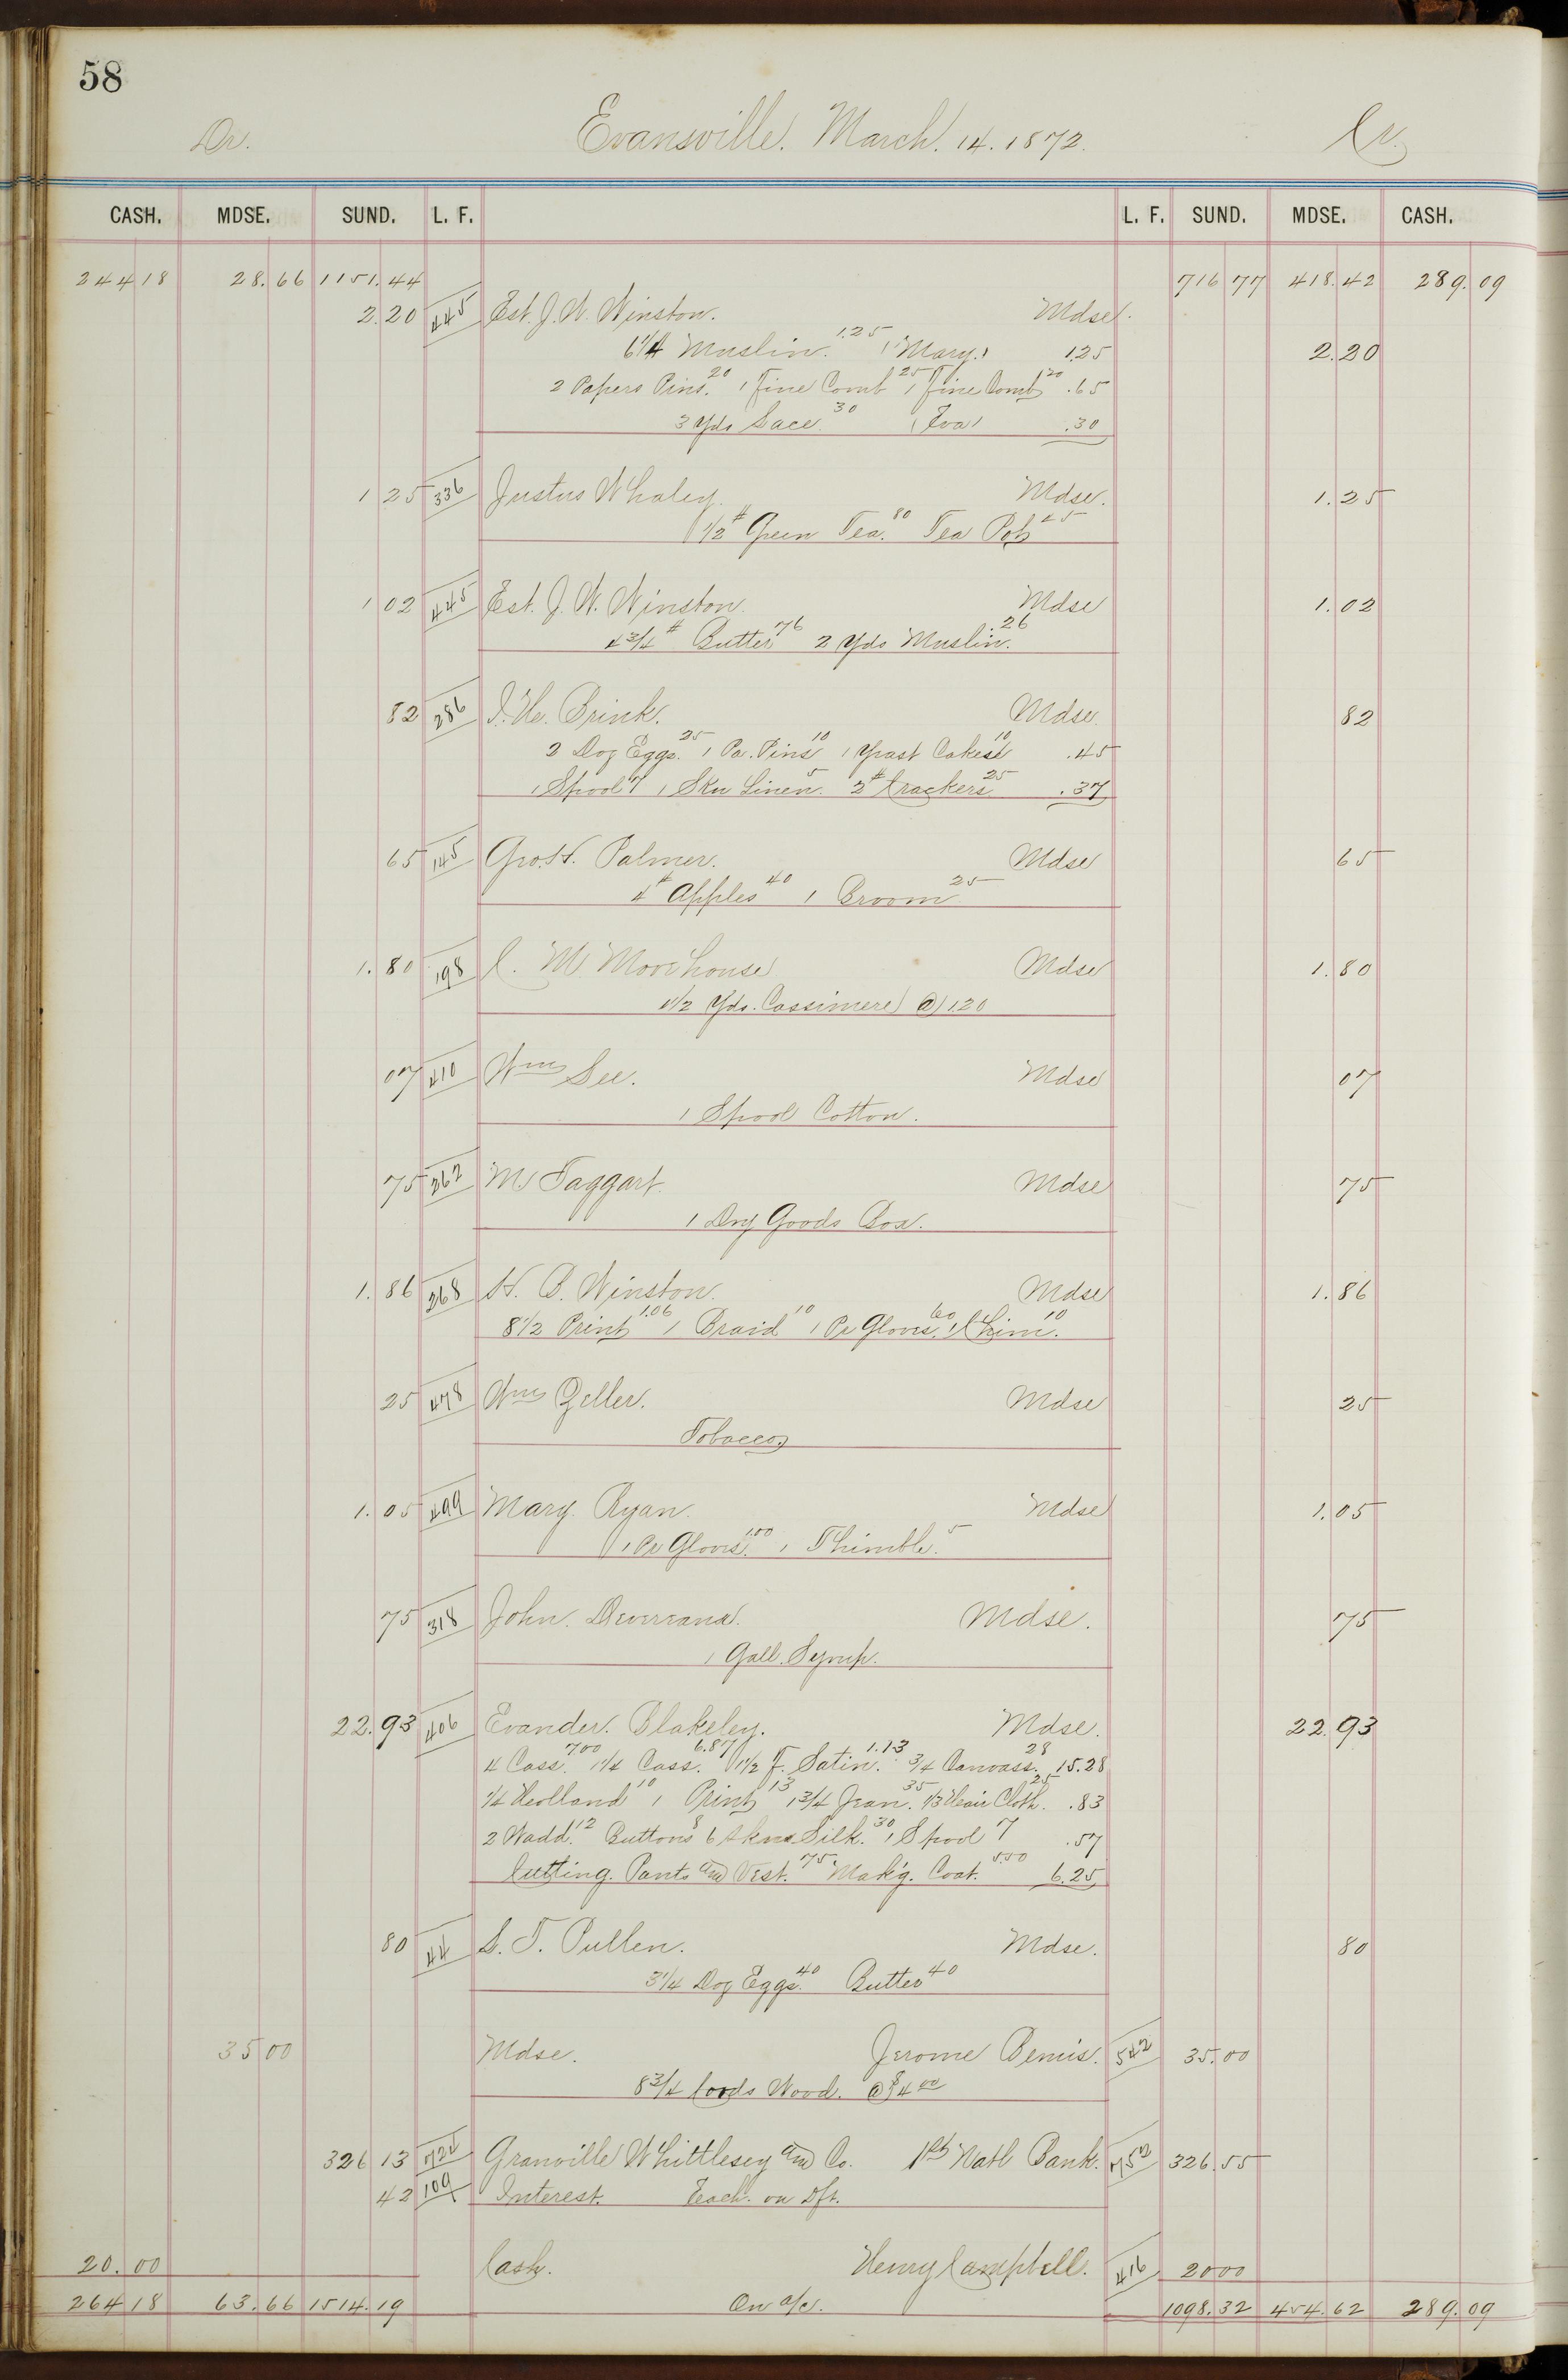 58
Dr. Evansville. March. 14. 1872. Cr.
CASH. MDSE. SUND. L. F. L. F. SUND. MDSE. CASH.
244 18 28.66 1151.44 716 77 418.42 289.09
2.20 445 Est. J. W. Winston. Mdse.
6 1/4 Muslin. 1.25 "Mary" 1.25 2.20
2 Papers Pins. 20 1 Fine Comb 25 1 Fine Comb 20 .65
3 Yds Lace. 30 "Eva" .30
1 25 336 Justus Whaley. Mdse. 1.25
1/2 # Green Tea. 80 Tea Pot 45
1 02 445 Est. J. W. Winston. Mdse 1.02
4 3/4 # Butter 76 2 Yds Muslin. .26
82 286 J. He. Brink. Mdse. 82
2 Doz Eggs. 25 1 Pa. Pins 10 1 Yeast Cakes 10 .45
1 Spool 7 1 Skn Linen. 5 2 # Crackers 25 .37
65 145 Geo. H. Palmer. Mdse 65
4 # Apples 40 1 Broom 25
1.80 198 C. M. Morehouse Mdse 1.80
1 1/2 Yds. Cassimere @ 1.20
07 410 Wm See. Mdse 07
1 Spool Cotton.
75 262 M. Taggart. Mdse 75
1 Dry Goods Box.
1.86 268 H. B. Winston. Mdse 1.86
8 1/2 Print 1.06 1 Braid 10 1 Pr Gloves. 60 1 Chim. 10
25 478 Wm Geller. Mdse 25
Tobacco
1.05 499 Mary Ryan. Mdse 1.05
1 Pr Gloves. 1.00 1 Thimble. 5
75 318 John. Devereaux. Mdse. 75
1 Gall. Syrup.
22.93 406 Evander. Blakeley. Mdse. 22.93
4 Cass. 7.00 1 1/4 Cass. 6.87 1 1/2 F. Satin. 1.13 3/4 Canvass. 28 15.28
1/4 Holland 10 1 Print 13 1 3/4 Jean. 35 1/3 Hair Cloth. 25 .83
2 Wadd. 12 Buttons 8 6 skns Silk. 30 1 Spool 7 .57
Cutting. Pants and Vest. 75 Mak'g. Coat. 5.50 6.25
80 44 S. T. Pullen. Mdse. 80
3 1/4 Doz Eggs. 40 Butter 40
35 00 Mdse. Jerome Bemis. 542 35.00
8 3/4 Cords Wood. @ $4 00
326 13 724 Granville Whittlesey and Co. 1st Natl Bank. 752 326.55
42 109 Interest. Exch. on Dft.
20.00 Cash. Henry Campbell. 416 20 00
264 18 63.66 1514.19 On a/c. 1098.32 454.62 289.09